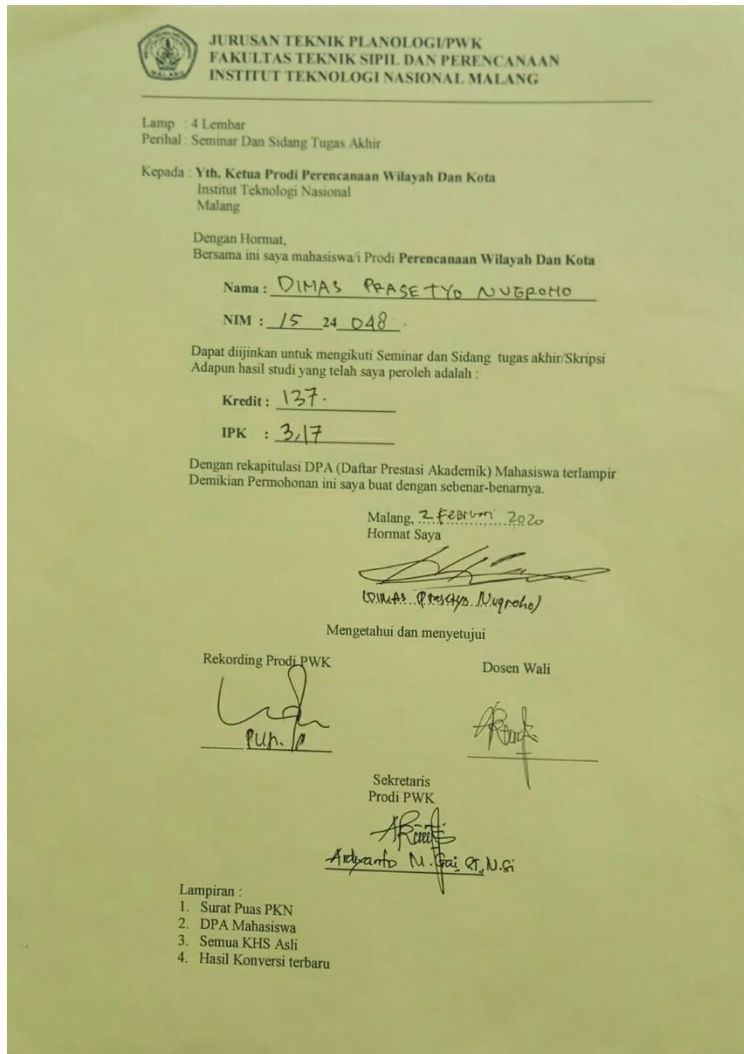 JURUSAN TEKNIK PLANOLOGI/PWK
FAKULTAS TEKNIK SIPIL DAN PERENCANAAN
INSTITUT TEKNOLOGI NASIONAL MALANG
MALANG
Lamp : 4 Lembar
Perihal : Seminar Dan Sidang Tugas Akhir
Kepada : Yth. Ketua Prodi Perencanaan Wilayah Dan Kota
Institut Teknologi Nasional
Malang
Dengan Hormat,
Bersama ini saya mahasiswa/i Prodi Perencanaan Wilayah Dan Kota
Nama : DIMAS PRASETYO NUGROHO
NIM : 15 24 048
Dapat diijinkan untuk mengikuti Seminar dan Sidang tugas akhir/Skripsi
Adapun hasil studi yang telah saya peroleh adalah :
Kredit : 137.
IPK : 3,17
Dengan rekapitulasi DPA (Daftar Prestasi Akademik) Mahasiswa terlampir
Demikian Permohonan ini saya buat dengan sebenar-benarnya.
Malang, 2 Februari 2020
Hormat Saya
(DIMAS Prasetyo Nugroho)
Mengetahui dan menyetujui
Rekording Prodi PWK
Dosen Wali
Sekretaris
Prodi PWK
Ardyanto M. Gai, ST, M.Si
Lampiran :
1. Surat Puas PKN
2. DPA Mahasiswa
3. Semua KHS Asli
4. Hasil Konversi terbaru